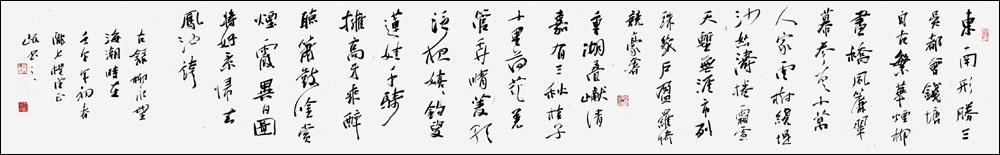 東南形勝三
吳都會錢塘
自古繁華煙柳
畫橋風簾翠
幕參差十萬
人家雲樹繞堤
沙怒濤捲霜雪
天塹無涯市列
珠璣戶盈羅綺
競豪奢
重湖疊巘清
嘉有三秋桂子
十里荷花羌
管弄晴菱歌
泛夜嬉釣叟
蓮娃千騎
擁高牙乘醉
聽簫鼓吟賞
煙霞異日圖
將好景歸去
鳳池誇
右錄柳永望
海潮時在
壬午年初春